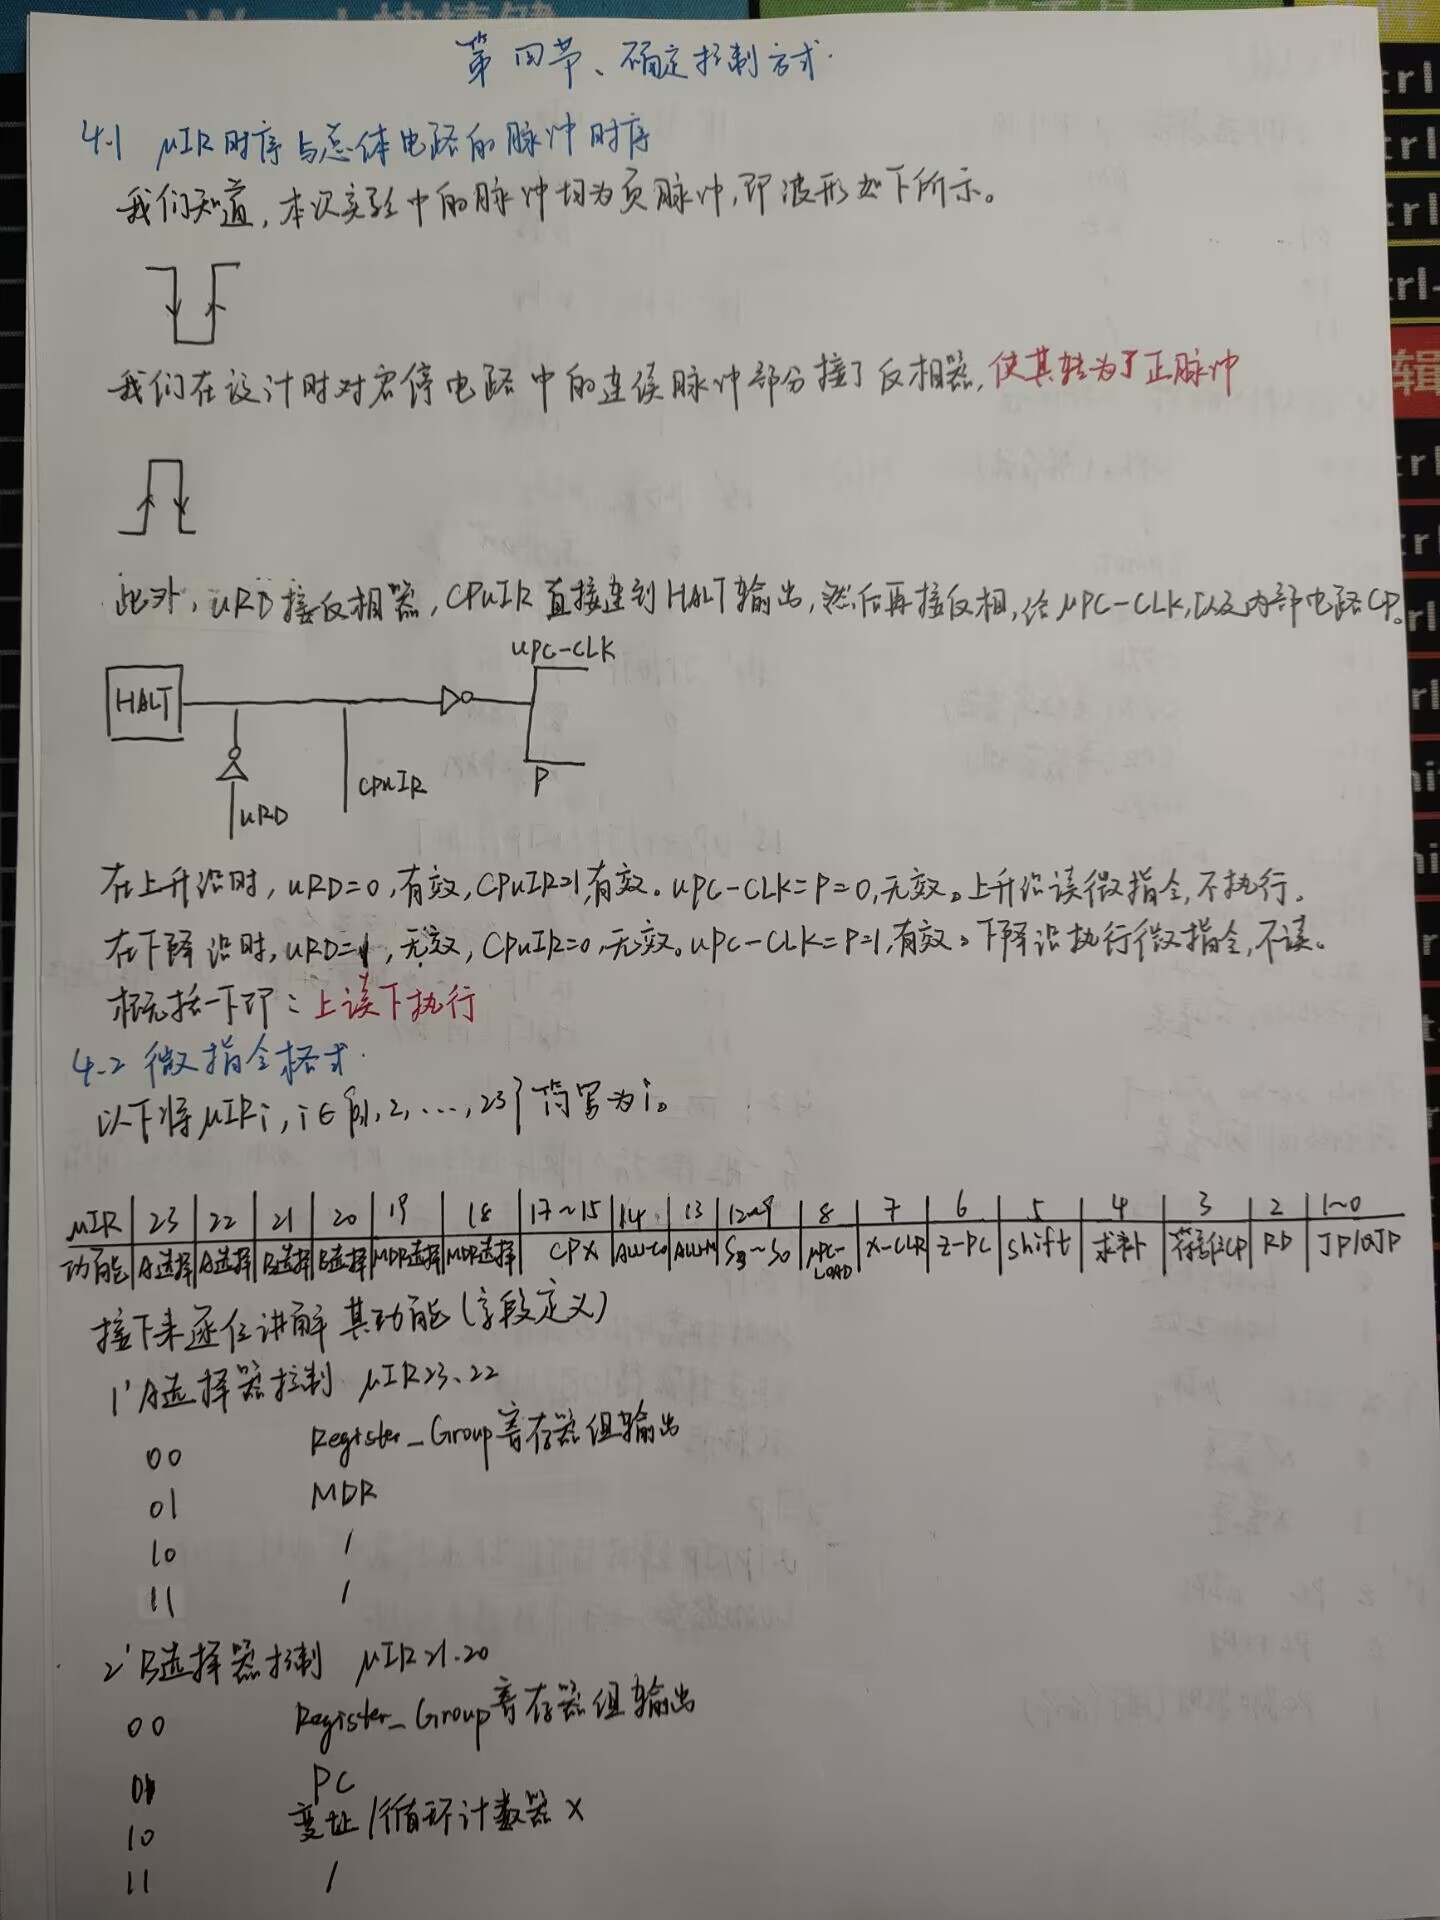 第四节、确定控制方式.
4.1 μIR时序与总体电路的脉冲时序
我们知道,本次实验中的脉冲均为负脉冲,即波形如下所示。
我们在设计时对启停电路中的连续脉冲部分接了反相器,使其转为了正脉冲
此外,uRD接反相器,CPuIR直接连到HALT输出,然后再接反相,给μPC-CLK,以及内部电路CP。
uPC-CLK
HALT
P
CPuIR
uRD
在上升沿时,uRD=0,有效,CPuIR=1,有效。uPC-CLK=P=0,无效。上升沿读微指令,不执行。
在下降沿时,uRD=1,无效,CPuIR=0,无效。uPC-CLK=P=1,有效。下降沿执行微指令,不读。
概括一下即:上读下执行
4.2 微指令格式.
以下将μIRi, i∈{0,1,2,...,23}简写为i。
μIR 23 22 21 20 19 18 17~15 14 13 12~9 8 7 6 5 4 3 2 1~0
功能 A选择 A选择 B选择 B选择 MDR选择 MDR选择 CPX ALU-C0 ALU-M S3~S0 μPC-LOAD X-CLR Z-PC Shift 求补 符号位CP RD JP/QJP
接下来逐位讲解其功能(字段定义)
1' A选择器控制 μIR23、22
00 Register_Group寄存器组输出
01 MDR
10 /
11 /
2' B选择器控制 μIR21.20
00 Register_Group寄存器组输出
01 PC
10 变址/循环计数器X
11 /